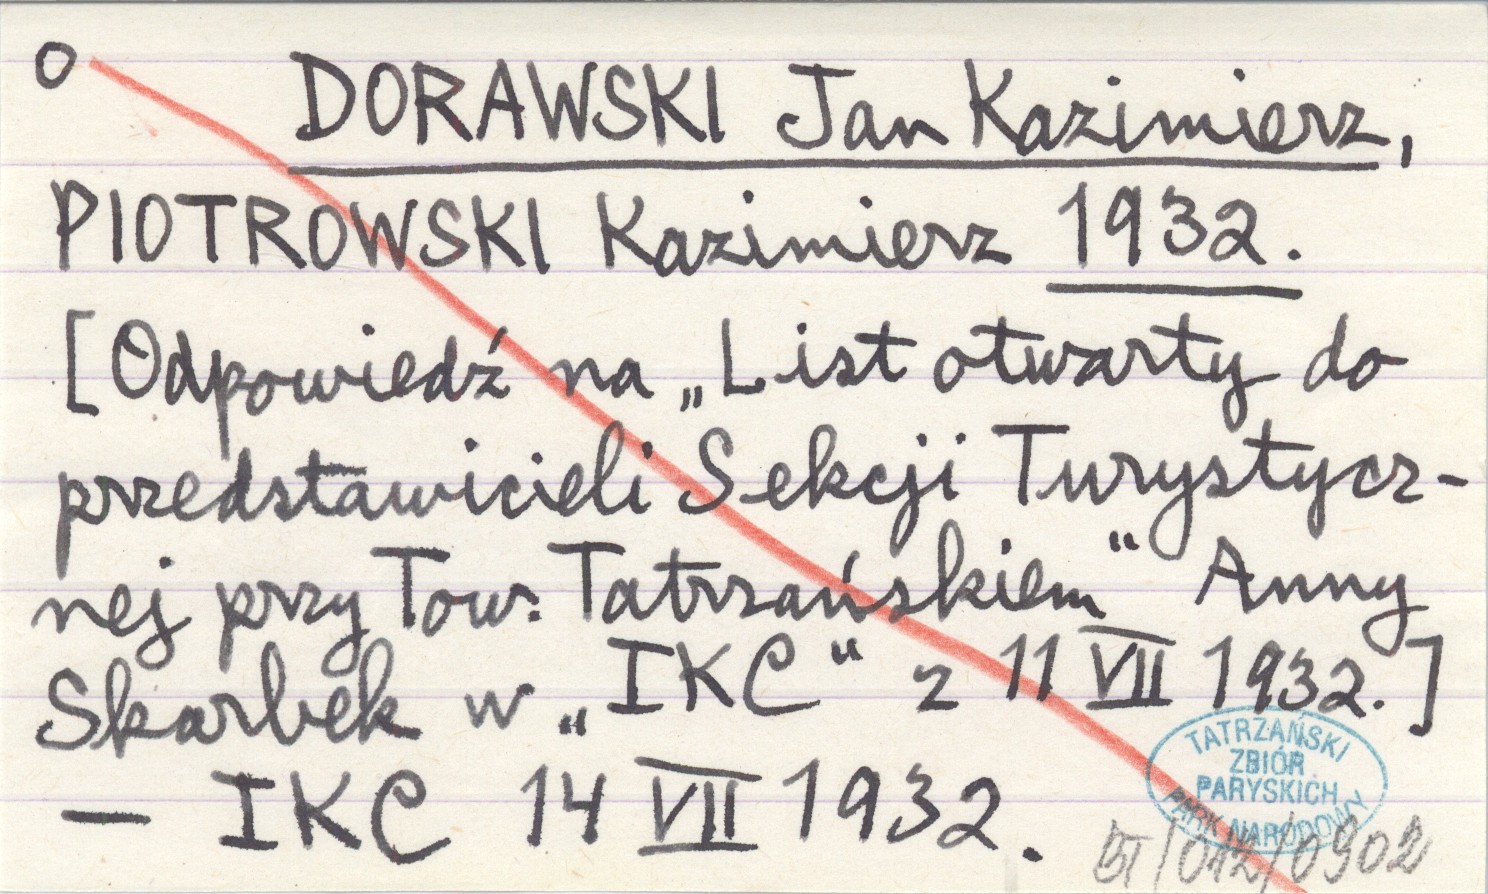 O DORAWSKI Jan Kazimierz,
PIOTROWSKI Kazimierz 1932.
[Odpowiedź na „List otwarty do
przedstawicieli Sekcji Turystycz-
nej przy Tow. Tatrzańskiem" Anny
Skarbek w „IKC" z 11 VII 1932.]
— IKC 14 VII 1932.
TATRZAŃSKI
ZBIÓR
PARYSKICH
PARK NARODOWY
BT/012/0902